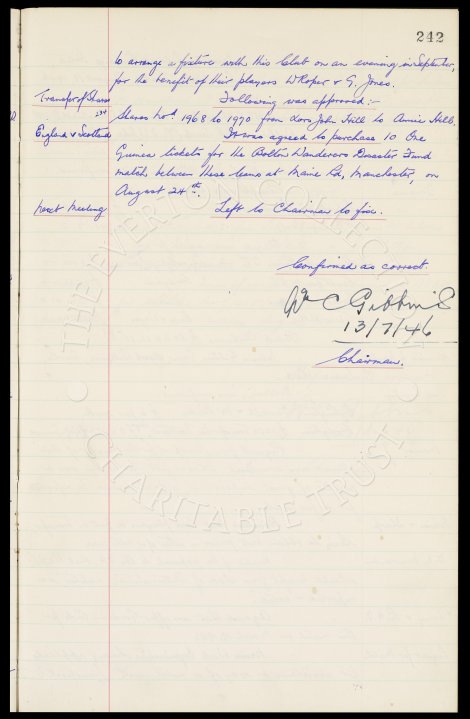 242
to arrange a fixture with this Club on an evening in September,
for the benefit of their players W Roper & G. Jones.
Transfer of Shares Following was approved:-
234
Shares Nos 1968 to 1970 from Exors John Hill to Annie Hill.
England v Scotland It was agreed to purchase 10 One
Guinea tickets for the Bolton Wanderers Disaster Fund
match between these teams at Maine Rd, Manchester, on
August 24th.
Next Meeting Left to Chairman to fix.
Confirmed as correct.
Wm C Gibbins
13/7/46
Chairman.
THE EVERTON COLLECTION
CHARITABLE TRUST